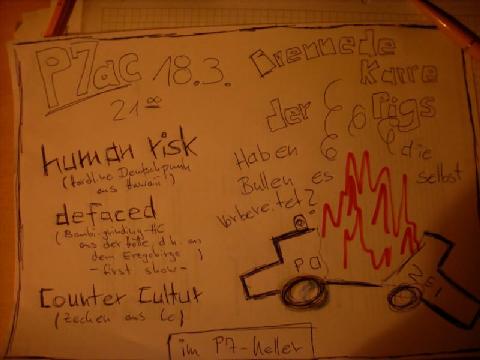 P7ac 18.3.
21 00
Brennede
Karre
der Pigs
human risk
(
aus Hawaii)
Haben die
Bullen es selbst
vorbereitet?
defaced
(Bambi-grinding-HC
aus der Hölle, d.h. aus
dem Erzgebirge)
- first show -
Counter Cultur
(Zecken aus Le)
PO
ZEI
im P7-Keller